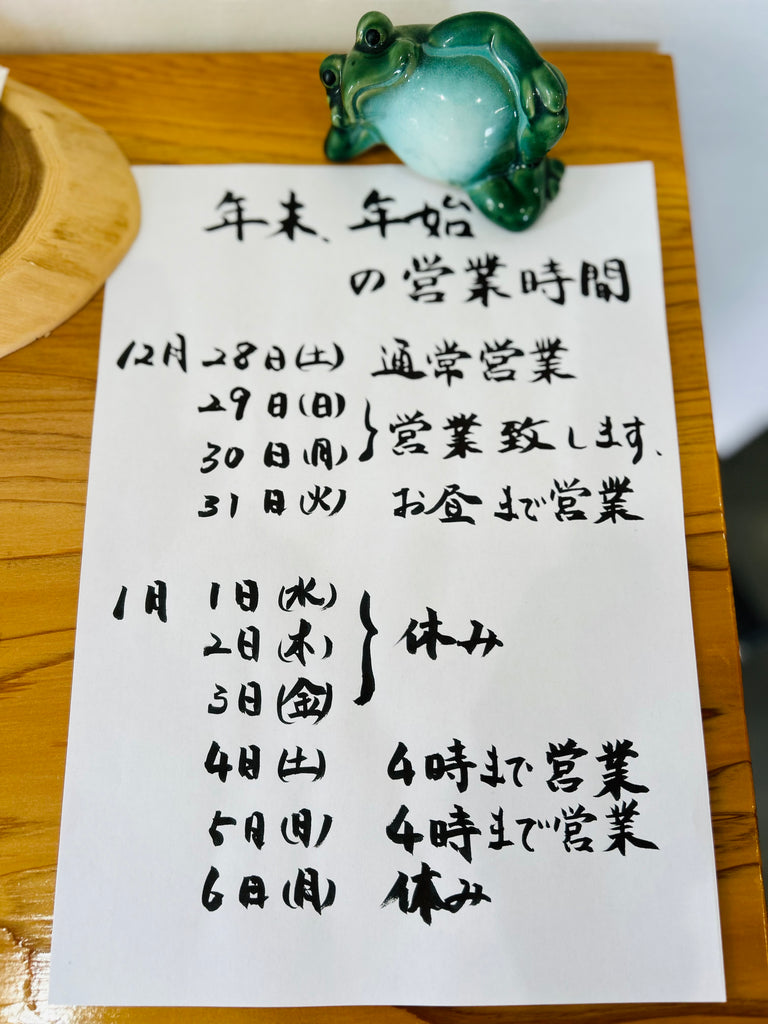 年末、年始
の営業時間
12月 28日(土) 通常営業
29日(日)
30日(月) } 営業致します、
31日(火) お昼まで営業
1月 1日(水)
2日(木) } 休み
3日(金)
4日(土) 4時まで営業
5日(日) 4時まで営業
6日(月) 休み